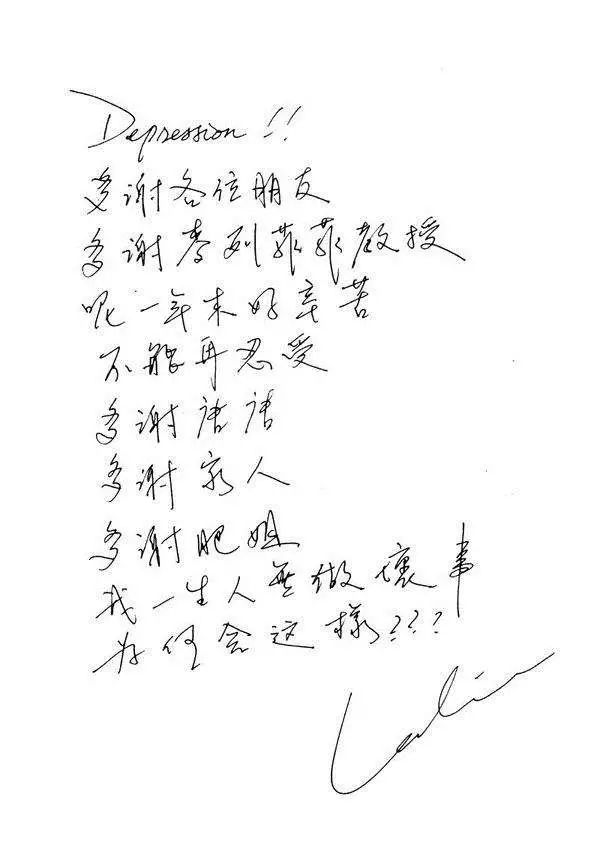 Depression!!
多谢各位朋友
多谢麥列菲菲教授
呢一年来好辛苦
不能再忍受
多谢唐唐
多谢家人
多谢肥姐
我一生人無做壞事
为何会这樣???
Leslie